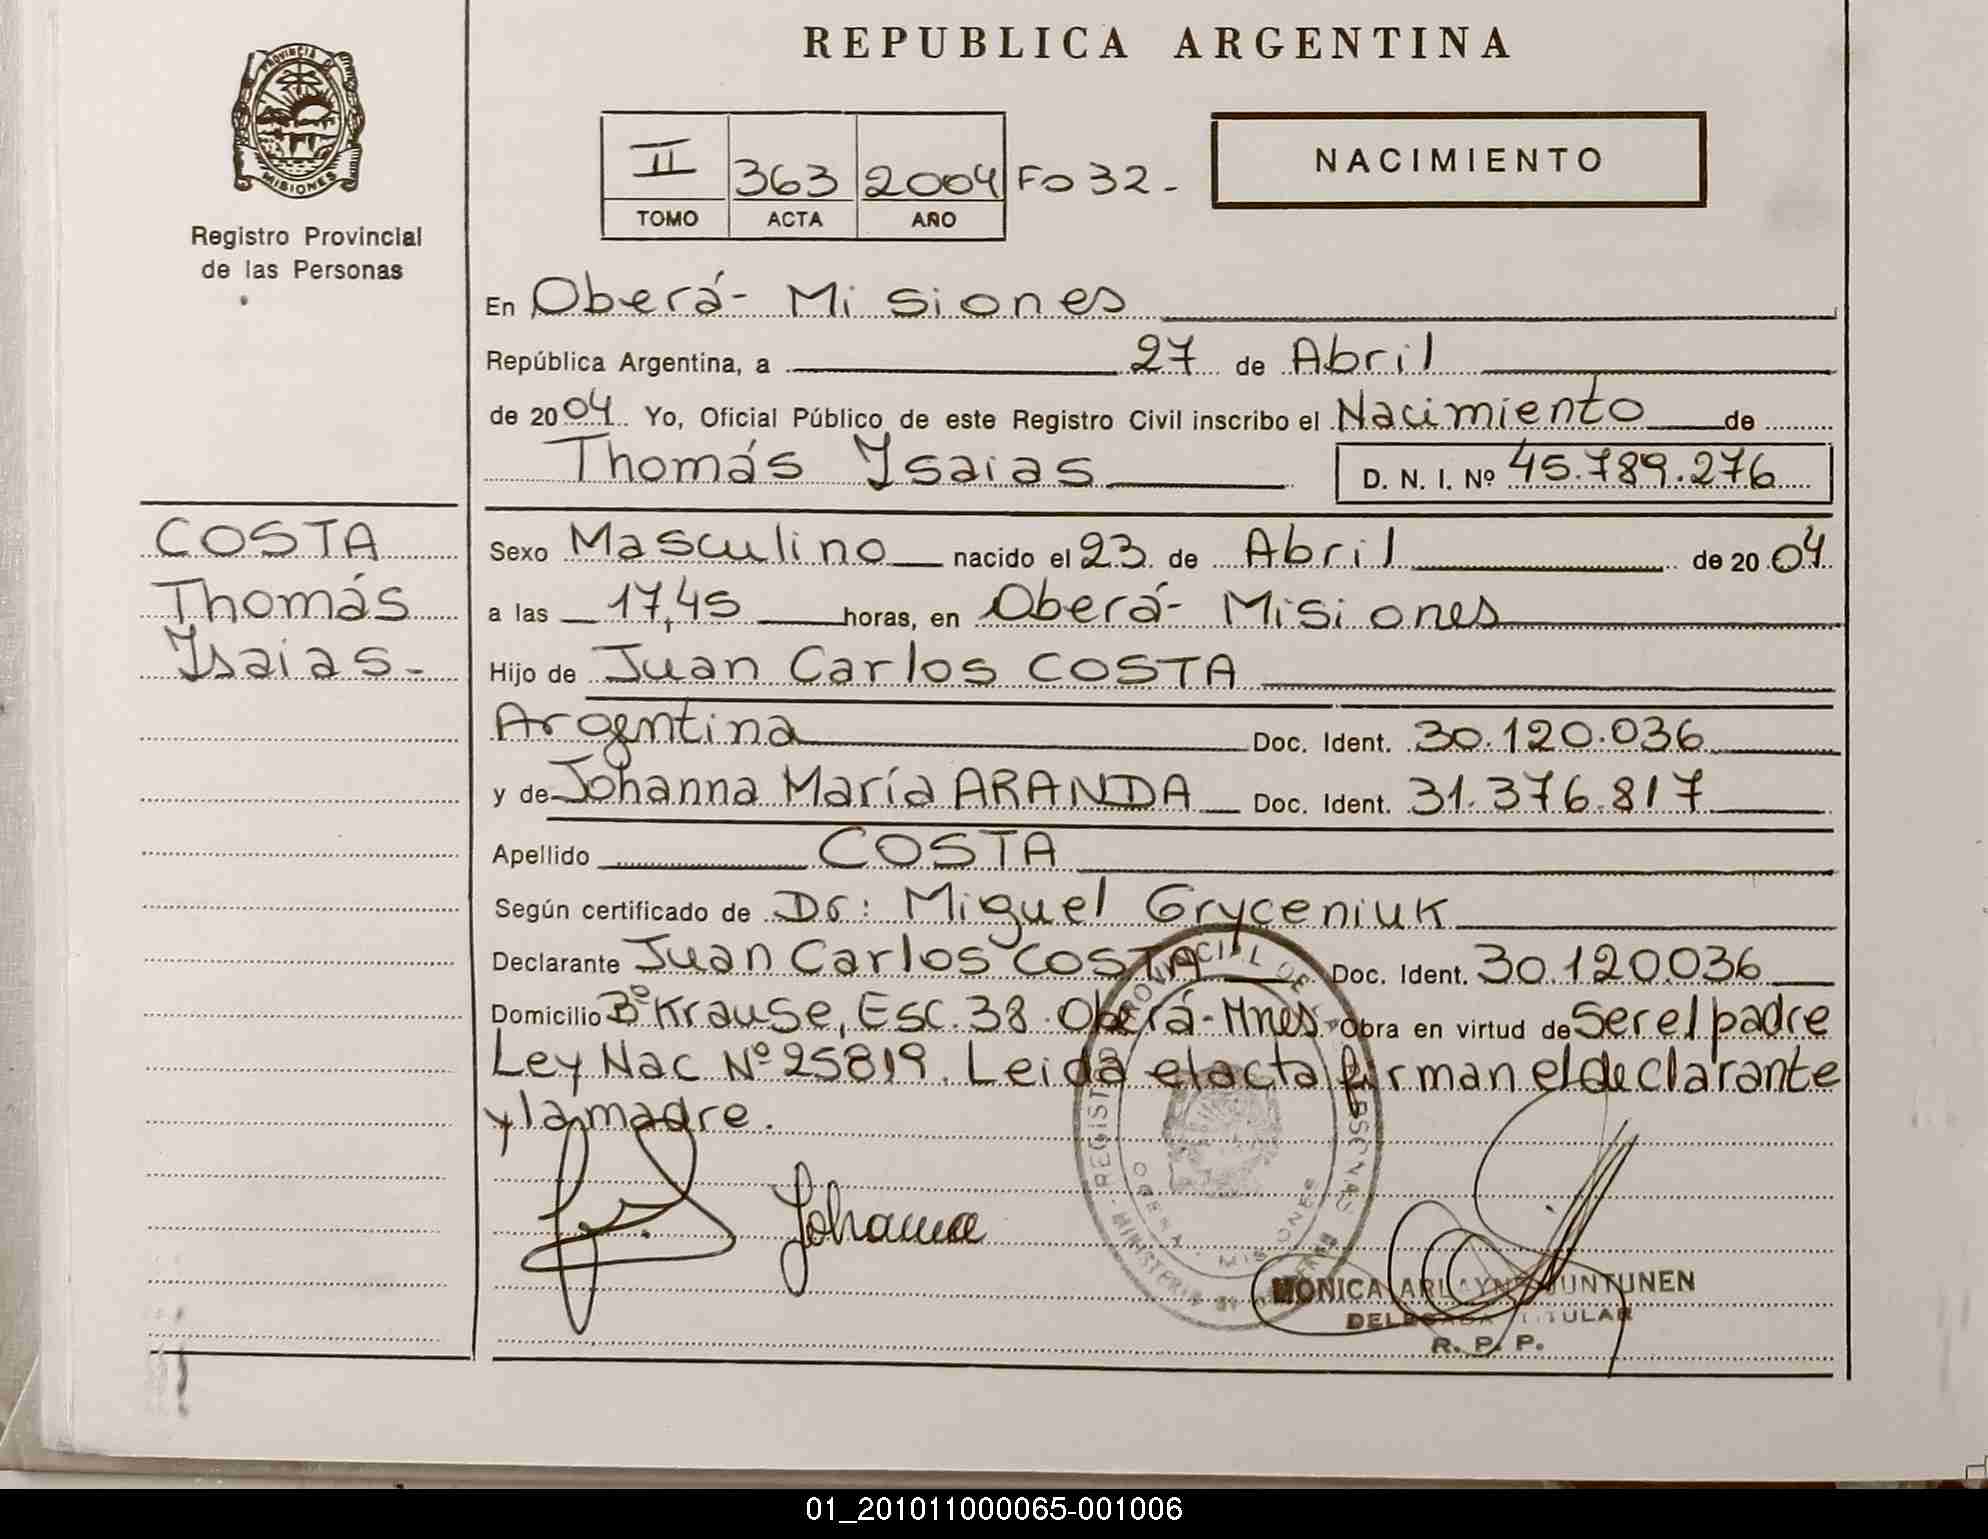 REPUBLICA ARGENTINA
PROVINCIA DE
MISIONES
Registro Provincial
de las Personas
II 363 2004 Fo 32-
TOMO ACTA AÑO
NACIMIENTO
En Oberá- Misiones
República Argentina, a 27 de Abril
de 2004 Yo, Oficial Público de este Registro Civil inscribo el Nacimiento de
Thomás Isaias D. N. I. Nº 45.789.276
COSTA
Thomás
Isaias-
Sexo Masculino nacido el 23 de Abril de 2004
a las 17,45 horas, en Oberá- Misiones
Hijo de Juan Carlos COSTA
Argentina Doc. Ident. 30.120.036
y de Johanna María ARANDA Doc. Ident. 31.376.817
Apellido COSTA
Según certificado de Dr: Miguel Gryceniuk
Declarante Juan Carlos COSTA Doc. Ident. 30.120.036
Domicilio Bº Krause, Esc. 38. Oberá- Mnes. Obra en virtud de Ser el padre
Ley Nac Nº 25819. Leida el acta firman el declarante
y la madre.
Johanna
REGISTRO PROVINCIAL DE LAS PERSONAS
MINISTERIO DE GOBIERNO
OBERA - MISIONES
MONICA ARLAYNE JUNTUNEN
DELEGADA TITULAR
R. P. P.
01_201011000065-001006